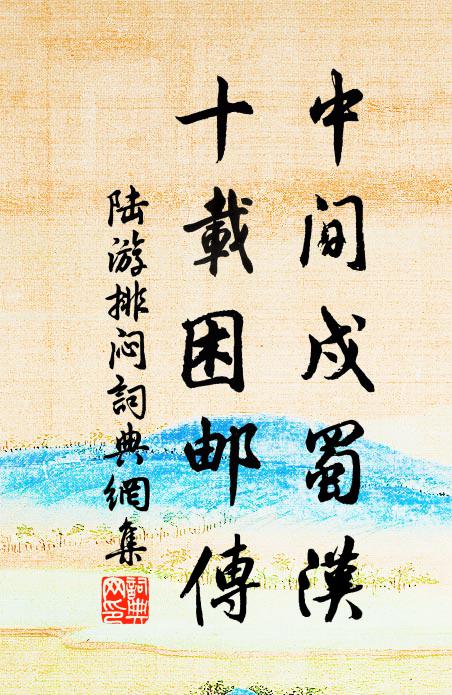 中间戍蜀漢
十載困邮傳
陆游排闷詞典網集
詞典网印